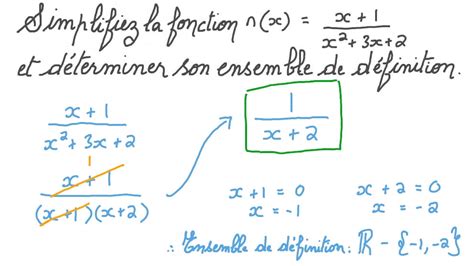 Simplifiez la fonction n(x) = x + 1 / x² + 3x + 2
et déterminer son ensemble de définition.
x + 1 / x² + 3x + 2
1
x + 1 / (x + 1)(x + 2)
1 / x + 2
x + 1 = 0
x = -1
x + 2 = 0
x = -2
∴ Ensemble de définition: ℝ - {-1, -2}